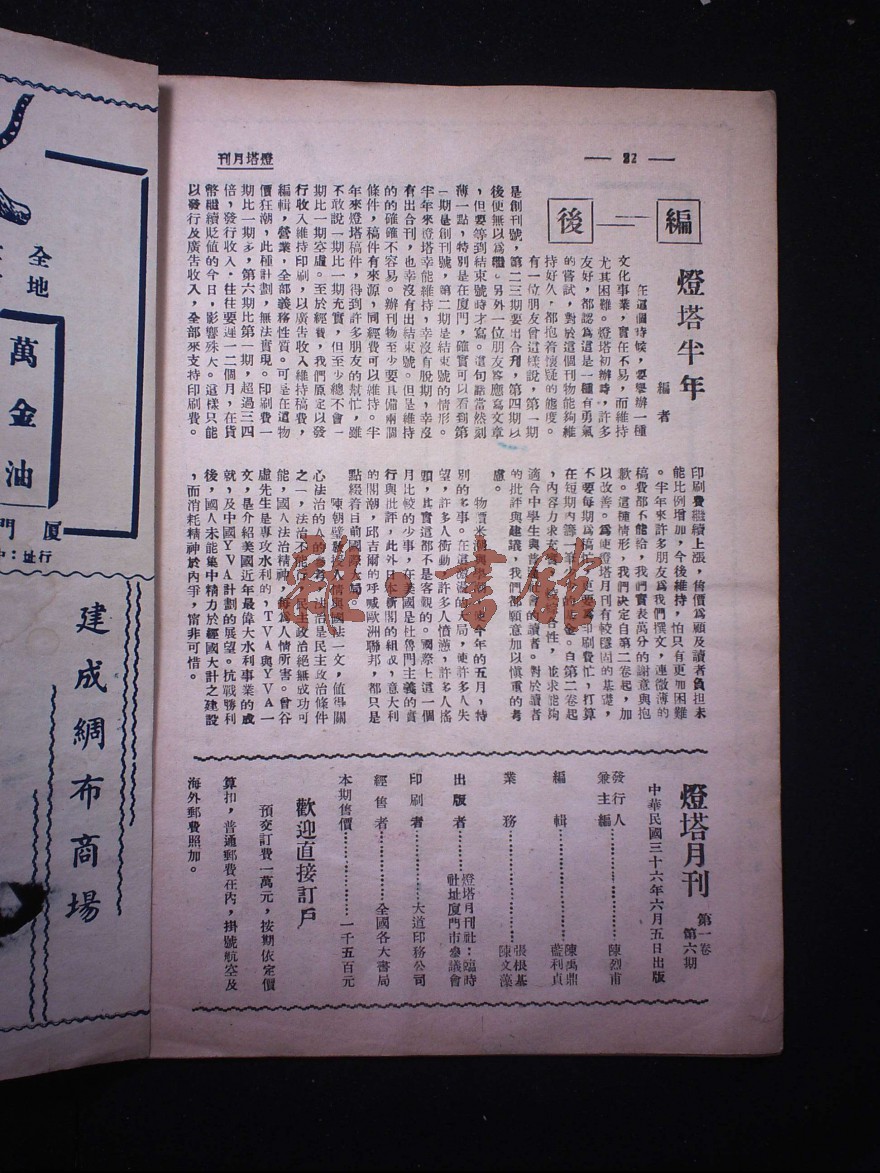 — 32 —
燈塔月刊
編後
燈塔半年
編者
在這個時候，要舉辦一種
文化事業，實在不易，而維持
尤其困難。燈塔初辦時，許多
友好，都認為這是一種有勇氣
的嘗試，對於這個刊物能夠維
持好久，都抱着懷疑的態度。
有一位朋友曾這樣說，第一期
是創刊號，第二三期要出合刊，第四期以
後便無以為繼。另外一位朋友答應寫文章
，但要等到結束號時才寫。這句話當然刻
薄一點，特別是在廈門，確實可以看到第
一期是創刊號，第二期是結束號的情形。
半年來燈塔幸能維持，幸沒有脫期，幸沒
有出合刊，也幸沒有出結束號。但是維持
的的確確不容易。辦刊物至少要具備兩個
條件，稿件有來源，同經費可以維持。半
年來燈塔稿件，得到許多朋友的幫忙，雖
不敢說一期比一期充實，但至少總不會一
期比一期空虛。至於經費，我們原定以發
行收入維持印刷，以廣告收入維持稿費，
編輯，營業，全部義務性質。可是在這物
價狂潮，此種計劃，無法實現。印刷費一
期比一期多，第六期比第一期，超過三四
倍，發行收入，往往要遲一二個月，在貨
幣繼續貶值的今日，影響殊大。這樣只能
以發行及廣告收入，全部來支持印刷費。
印刷費繼續上漲，售價為顧及讀者負担未
能比例增加，今後維持，怕只有更加困難
。半年來許多朋友為我們撰文，連微薄的
稿費都不能給，我們實表萬分的謝意與抱
歉。這種情形，我們決定自第二卷起，加
以改善。為使燈塔月刊有較穩固的基礎，
不要每期為稿忙，更要為印刷費忙，打算
在短期內籌一筆 的基金。自第二卷起
，內容力求充實， 各性，並求能夠
適合中學生與普通社會的讀者。對於讀者
的批評與建議，我們都願意加以慎重的考
慮。
物價米潮與學潮，使今年的五月，特
別的多事。在這 的大局，使許多人失
望，許多人衝動，許多人憤懣，許多人徬
，其實這都不是客觀的。國際上這一個
月比較的少事，在美國是杜魯門主義的實
行與批評，此外日本新閣的組成，意大利
的閣潮，邱吉爾的呼喊歐洲聯邦，都只是
點綴着目前國際大局。
陳朝璧教授人情與國法一文，值得關
心法治的人的 考，法治是民主政治條件
之一，法治不能行，民主政治絕無成功可
能，國人法治精神，每為人情所害。曾谷
虛先生是專攻水利的，TVA與YVA一
文，是介紹美國近年最偉大水利事業的成
就，及中國YVA計劃的展望。抗戰勝利
後，國人未能集中精力於經國大計之建設
，而消耗精神於內爭，甯非可惜。
燈塔月刊 第一卷 第六期
中華民國三十六年六月五日出版
發行人兼主編………陳烈甫
編輯………陳禹鼎 藍利貞
業務………張根基 陳文藻
出版者………燈塔月刊社：臨時社址廈門市參議會
印刷者………大道印務公司
經售者………全國各大書局
本期售價………一千五百元
歡迎直接訂戶
預交訂費一萬元，按期依定價
算扣，普通郵費在內，掛號航空及
海外郵費照加。
全
地
萬金油
廈門
行址：中
建成綢布商場